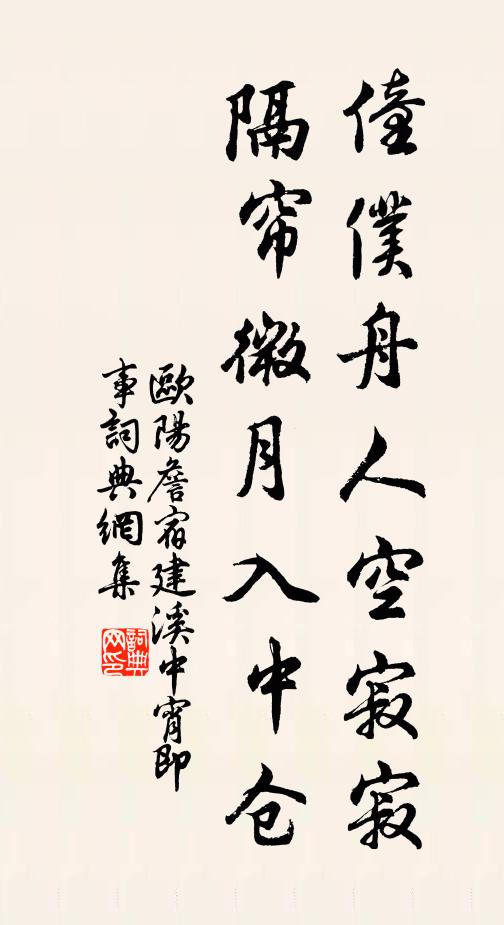 僮僕舟人空寂寂
隔帘微月入中仓
歐陽詹宿建溪中宵即
事詞典網集
詞典网印